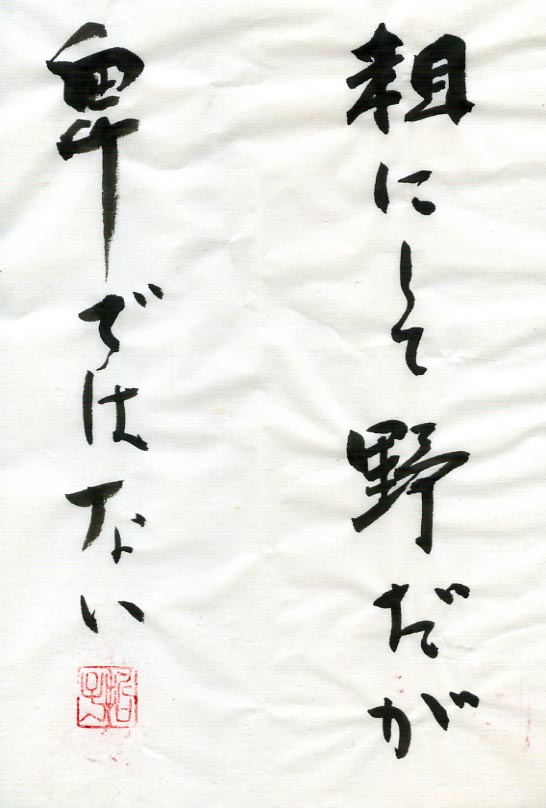 粗にして野だが
卑ではない